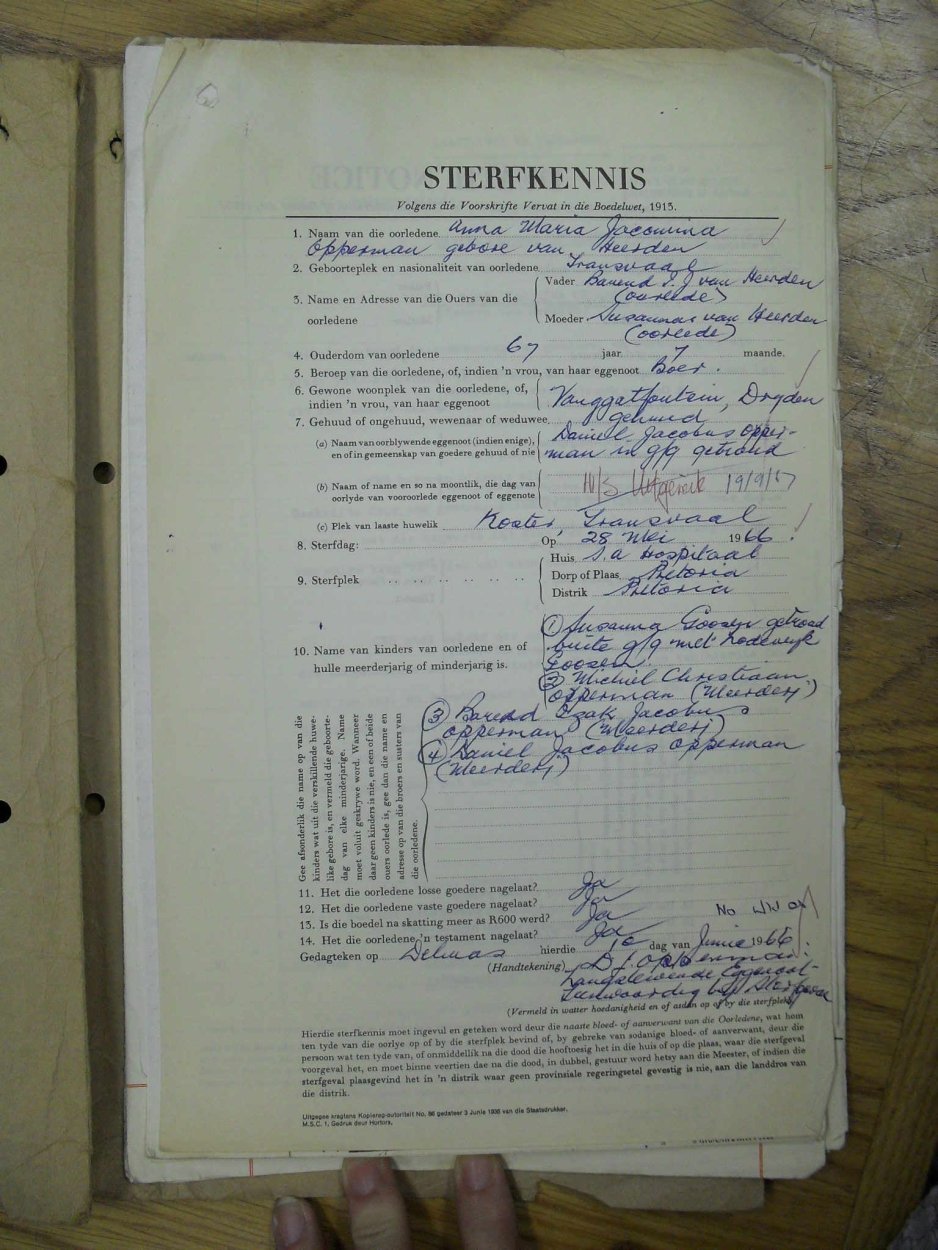 STERFKENNIS
Volgens die Voorskrifte Vervat in die Boedelwet, 1915.
1. Naam van die oorledene Anna Maria Jacomina
Opperman gebore van Heerden
2. Geboorteplek en nasionaliteit van oorledene Transvaal
3. Name en Adresse van die Ouers van die oorledene
Vader Barend I. J van Heerden
(oorlede)
Moeder Susannas van Heerden
(oorlede)
4. Ouderdom van oorledene 67 jaar 7 maande.
5. Beroep van die oorledene, of, indien 'n vrou, van haar eggenoot Boer.
6. Gewone woonplek van die oorledene, of,
indien 'n vrou, van haar eggenoot Vanggatfontein, Dryden
7. Gehuud of ongehuud, wewenaar of weduwee gehuud
(a) Naam van oorblywende eggenoot (indien enige), Daniel Jacobus Opper-
en of in gemeenskap van goedere gehuud of nie man in g/g getroud
(b) Naam of name en so na moontlik, die dag van
oorlyde van vooroorlede eggenoot of eggenote
Uitgereik 19/9/67
(c) Plek van laaste huwelik Koster, Transvaal
8. Sterfdag: Op 28 Mei 1966.
9. Sterfplek Huis S.A Hospitaal
Dorp of Plaas Pretoria
Distrik Pretoria
10. Name van kinders van oorledene en of
hulle meerderjarig of minderjarig is.
(1) Susanna Goosen getroud
buite g/g met Lodewyk
Goosen.
(2) Michiel Christiaan
Opperman (Meerderj)
(3) Barend Izak Jacobus
Opperman (Meerderj)
(4) Daniel Jacobus Opperman
(Meerderj)
Gee afsonderlik die name op van die
kinders wat uit die verskillende huwe-
like gebore is, en vermeld die geboorte-
dag van elke minderjarige. Name
moet voluit geskrywe word. Wanneer
daar geen kinders is nie, en een of beide
ouers oorlede is, gee dan die name en
adresse op van die broers en susters van
die oorledene.
11. Het die oorledene losse goedere nagelaat? Ja
12. Het die oorledene vaste goedere nagelaat? Ja
13. Is die boedel na skatting meer as R600 werd? Ja
14. Het die oorledene 'n testament nagelaat? Ja
Gedagteken op Delmas hierdie 10 dag van Junie 1966.
(Handtekening) D. J. Opperman.
Langslewende Eggenoot-
Teenwoordig by Sterfgeval
(Vermeld in watter hoedanigheid en of astan op of by die sterfplek)
Hierdie sterfkennis moet ingevul en geteken word deur die naaste bloed- of aanverwant van die Oorledene, wat hom
ten tyde van die oorlye op of by die sterfplek bevind of, by gebreke van sodanige bloed- of aanverwant, deur die
persoon wat ten tyde van, of onmiddellik na die dood die hooftoesig het in die huis of op die plaas, waar die sterfgeval
voorgeval het, en moet binne veertien dae na die dood, in dubbel, gestuur word hetsy aan die Meester, of indien die
sterfgeval plaasgevind het in 'n distrik waar geen provinsiale regeringsetel gevestig is nie, aan die landdros van
die distrik.
Uitgegee kragtens Kopiereg-autoriteit No. 86 gedateer 3 Junie 1936 van die Staatsdrukker.
M.S.C. 1, Gedruk deur Hortors.